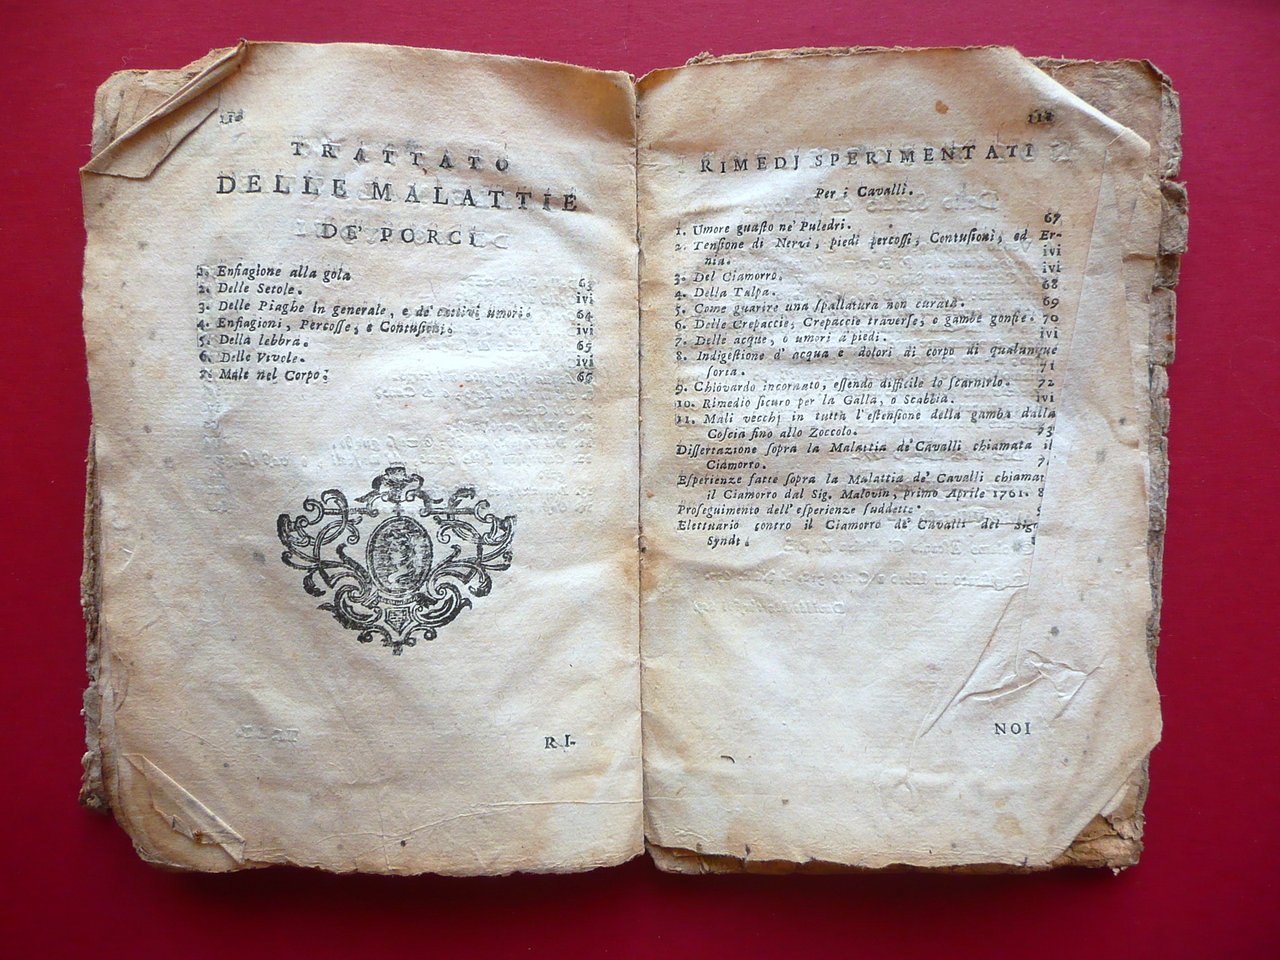 TRATTATO
DELLE MALATTIE
DE' PORCI
1. Enfiagione alla gola 63
2. Delle Setole. ivi
3. Delle Piaghe in generale, e de' cattivi umori. 64
4. Enfiagioni, Percosse, e Contusioni. ivi
5. Della lebbra. 65
6. Delle Vivole. ivi
7. Male nel Corpo. 66
RI-
RIMEDJ SPERIMENTATI
Per i Cavalli.
1. Umore guasto ne' Puledri. 67
2. Tensione di Nervi, piedi percossi, Contusioni, ed Er-
nia. ivi
3. Del Ciamorro. ivi
4. Della Talpa. 68
5. Come guarire una spallatura non curata. 69
6. Delle Crepaccie, Crepaccie traverse, o gambe gonfie. 70
7. Delle acque, o umori a piedi. ivi
8. Indigestione d' acqua e dolori di corpo di qualunque
sorta. 71
9. Chiovardo incornato, essendo difficile lo scarnirlo. 72
10. Rimedio sicuro per la Galla, o Scabbia. ivi
11. Mali vecchj in tutta l'estensione della gamba dalla
Coscia fino allo Zoccolo. 73
Dissertazione sopra la Malattia de' Cavalli chiamata il
Ciamorro. 7
Esperienze fatte sopra la Malattia de' Cavalli chiamat
il Ciamorro dal Sig. Malovin, primo Aprile 1761. 8
Proseguimento dell' esperienze suddette.
Elettuario contro il Ciamorro de' Cavalli del Sig
Syndt.
NOI